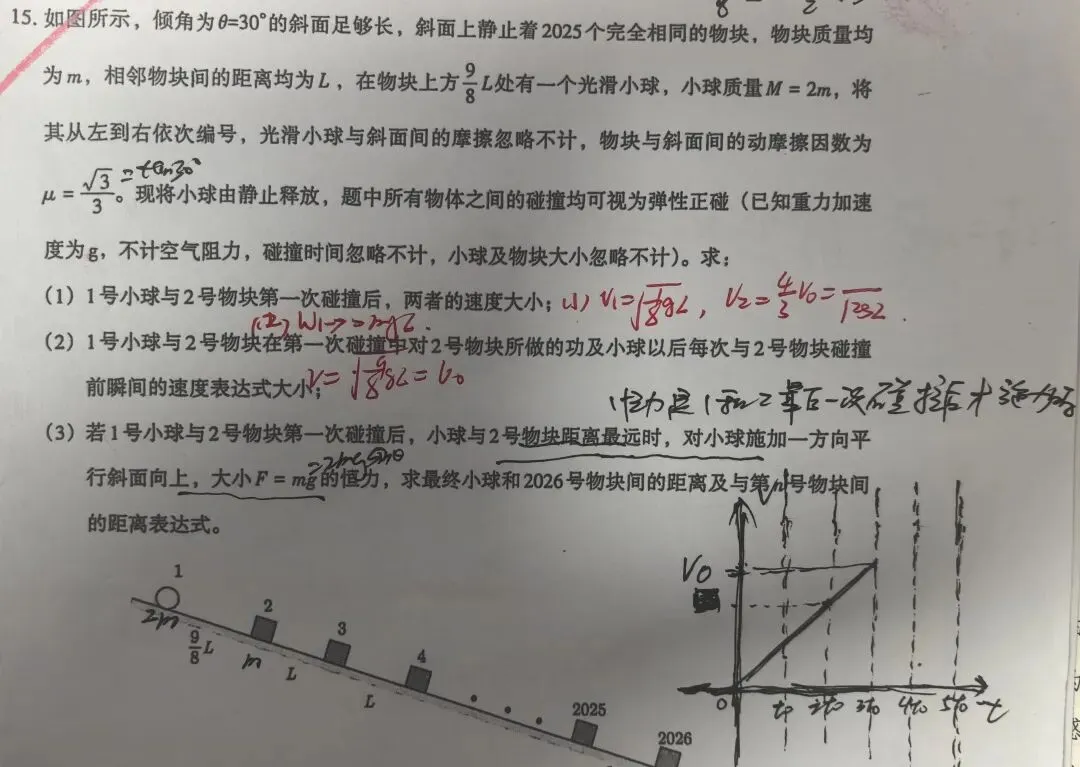 15. 如图所示，倾角为θ=30°的斜面足够长，斜面上静止着2025个完全相同的物块，物块质量均
为m，相邻物块间的距离均为L，在物块上方9/8 L处有一个光滑小球，小球质量M = 2m，将
其从左到右依次编号，光滑小球与斜面间的摩擦忽略不计，物块与斜面间的动摩擦因数为
=tan30°
μ = √3/3。现将小球由静止释放，题中所有物体之间的碰撞均可视为弹性正碰（已知重力加速
度为g，不计空气阻力，碰撞时间忽略不计，小球及物块大小忽略不计）。求：
（1）1号小球与2号物块第一次碰撞后，两者的速度大小；
(1) V₁=√(1/8 gL)，V₂=4/3 V₀=√2gL.
(2) W₁→=mgL.
（2）1号小球与2号物块在第一次碰撞中对2号物块所做的功及小球以后每次与2号物块碰撞
前瞬间的速度表达式大小；
V=√(9/8 gL)=V₀
1和2最后一次碰撞后才施加
（3）若1号小球与2号物块第一次碰撞后，小球与2号物块距离最远时，对小球施加一方向平
=2mgsinθ
行斜面向上，大小F = mg的恒力，求最终小球和2026号物块间的距离及与第n号物块间
的距离表达式。
1
2m
9/8 L
2
m
L
3
L
4
2025
2026
V
V₀
0 t₀ 2t₀ 3t₀ 4t₀ 5t₀ t